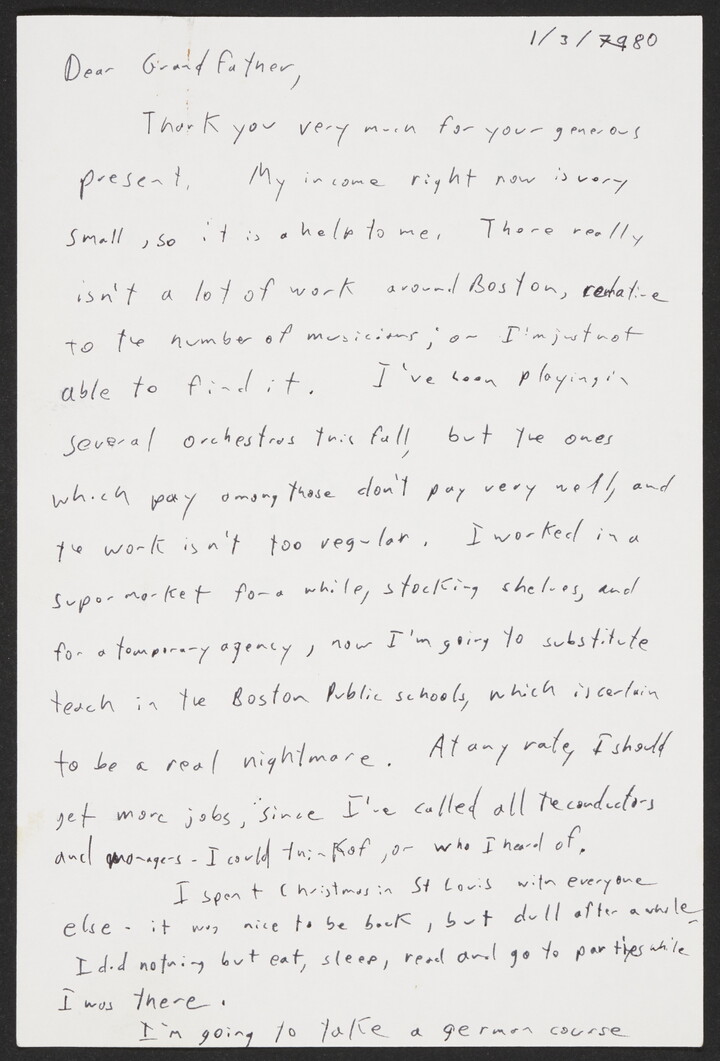 1/3/7980
Dear Grandfather,
Thank you very much for your generous
present. My income right now is very
small, so it is a help to me. There really
isn't a lot of work around Boston, relative
to the number of musicians; or I'm just not
able to find it. I've been playing in
several orchestras this fall, but the ones
which pay among those don't pay very well, and
the work isn't too regular. I worked in a
supermarket for a while, stocking shelves, and
for a temporary agency, now I'm going to substitute
teach in the Boston Public schools, which is certain
to be a real nightmare. At any rate, I should
get more jobs, since I've called all the conductors
and managers - I could think of, or who I heard of.
I spent Christmas in St Louis with everyone
else - it was nice to be back, but dull after a while.
I did nothing but eat, sleep, read and go to parties while
I was there.
I'm going to take a german course